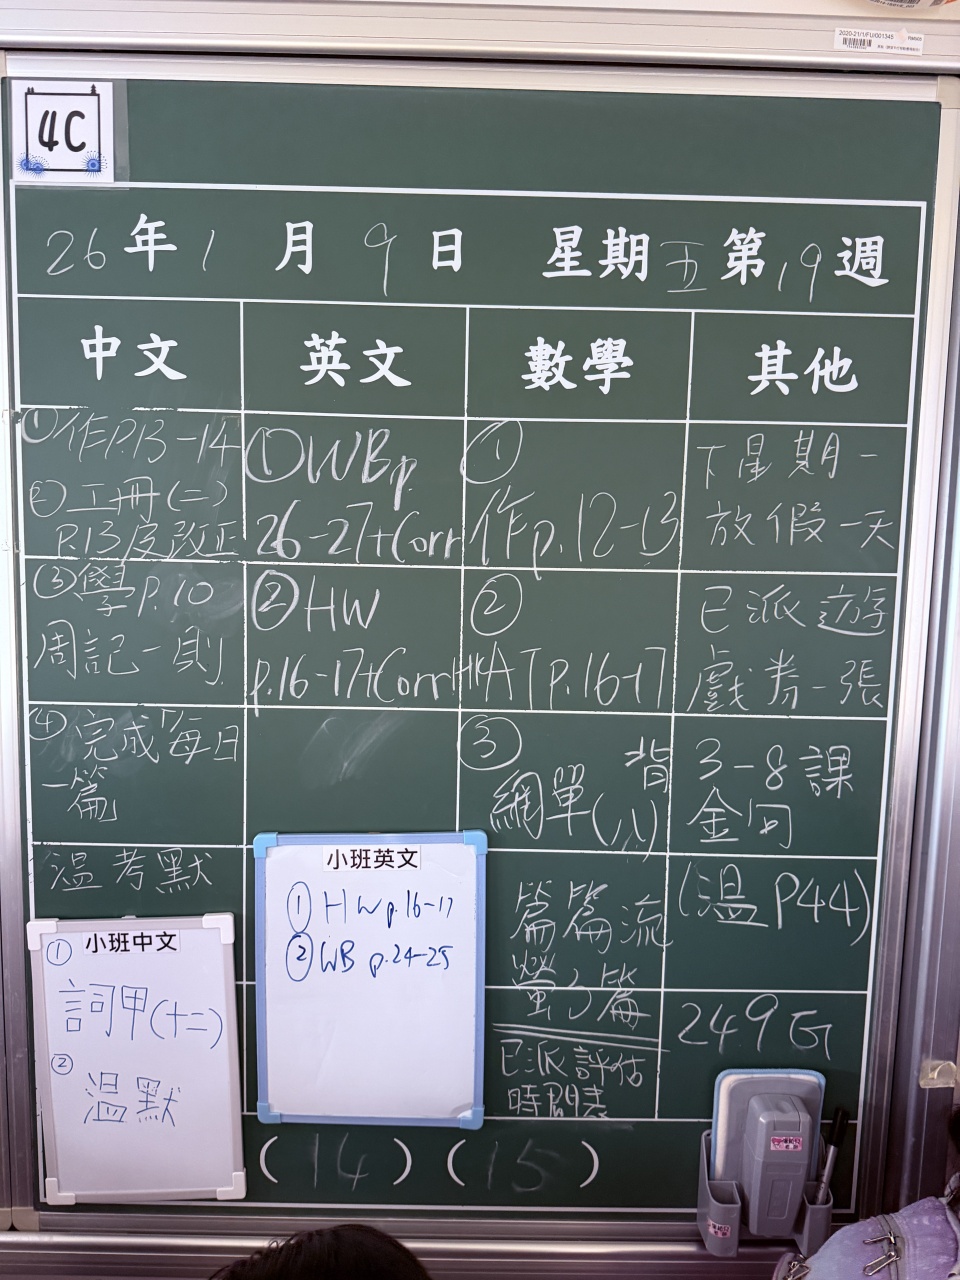 2020-21/1/FU/001345
4C
26年1月9日 星期五第19週
中文
①作P.13-14
②工冊(二)
P.13及改正
③學p.10
周記一則
④完成「每日
一篇」
溫考默
英文
①WBp.
26-27+Corr
②HW
p.16-17+Corr
數學
①
作p.12-13
②
HKAT p.16-17
③
網單(八)背
篇篇流
螢3篇
已派評估
時間表
其他
下星期一
放假一天
已派遊
戲券一張
3-8課
金句
(溫P44)
249G
小班中文
①
詞甲(十二)
②
溫默
小班英文
①HWp.16-17
②WB p.24-25
(14)(15)